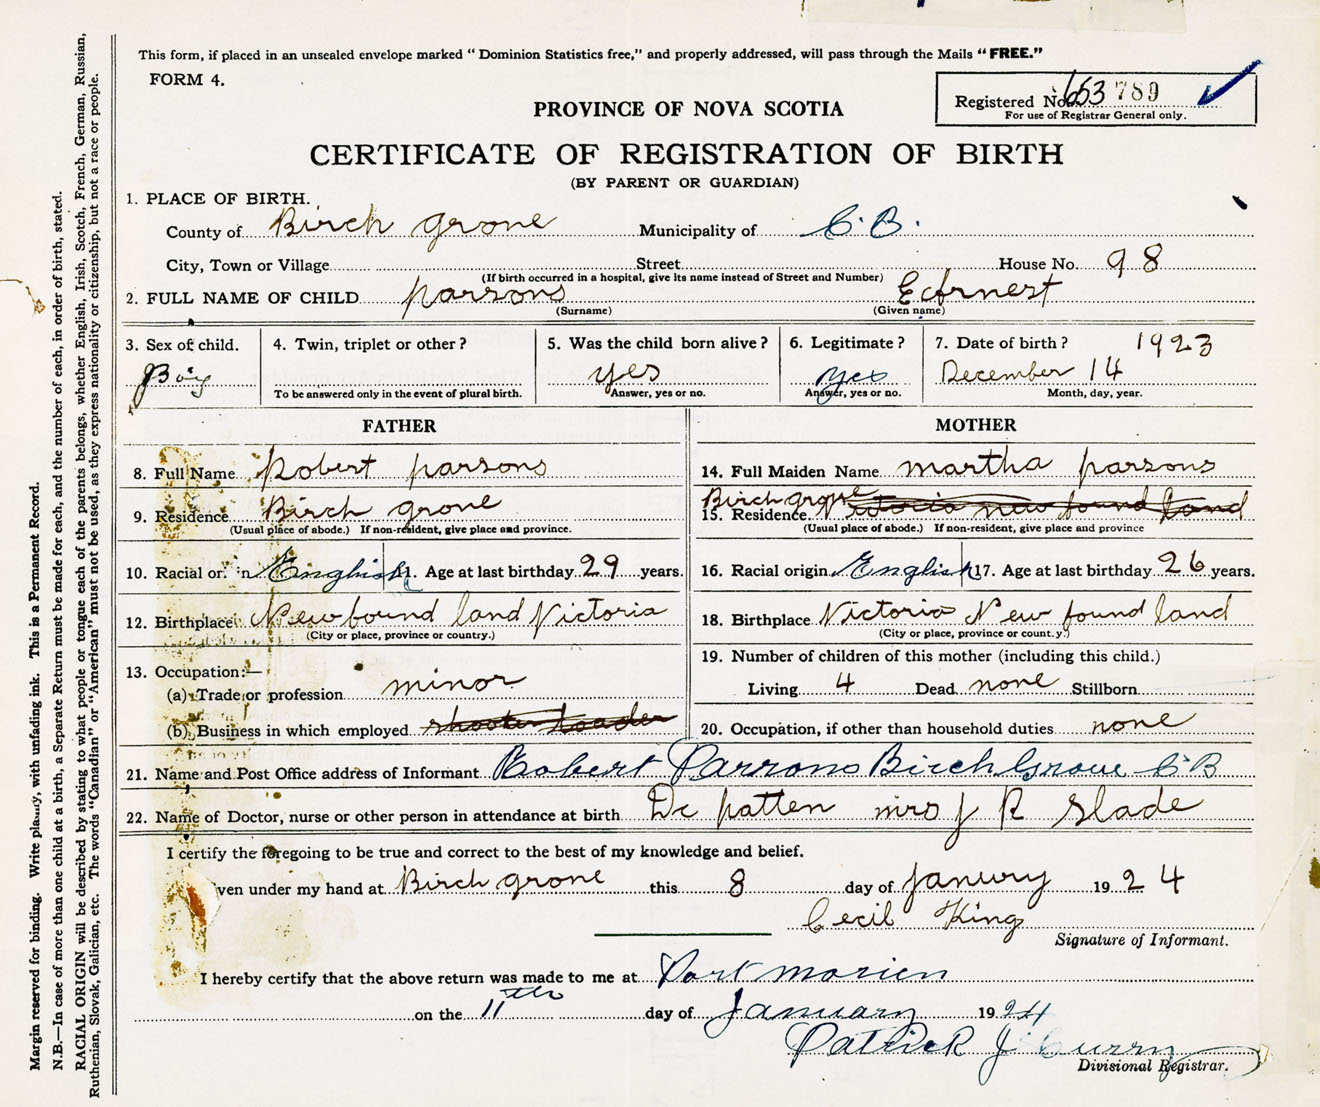 This form, if placed in an unsealed envelope marked "Dominion Statistics free," and properly addressed, will pass through the Mails "FREE."
FORM 4.
Registered No. 653 789
For use of Registrar General only.
PROVINCE OF NOVA SCOTIA
CERTIFICATE OF REGISTRATION OF BIRTH
(BY PARENT OR GUARDIAN)
1. PLACE OF BIRTH.
County of Birch grone Municipality of C.B.
City, Town or Village Street House No. 98
(If birth occurred in a hospital, give its name instead of Street and Number)
2. FULL NAME OF CHILD parsons
(Surname) (Given name)
3. Sex of child. 4. Twin, triplet or other? 5. Was the child born alive? 6. Legitimate? 7. Date of birth? 1923
Boy yes yes December 14
To be answered only in the event of plural birth. Answer, yes or no. Answer, yes or no. Month, day, year.
FATHER MOTHER
8. Full Name Robert parsons 14. Full Maiden Name martha parsons
9. Residence Birch grone 15. Residence. Birch grone Victoria new found land
(Usual place of abode.) If non-resident, give place and province. (Usual place of abode.) If non-resident, give place and province
10. Racial or in English 11. Age at last birthday 29 years. 16. Racial origin English 17. Age at last birthday 26 years.
12. Birthplace Newfound land Victoria 18. Birthplace Victoria New found land
(City or place, province or country.) (City or place, province or count.y.)
13. Occupation:— 19. Number of children of this mother (including this child.)
(a) Trade or profession minor Living 4 Dead none Stillborn
(b) Business in which employed 20. Occupation, if other than household duties none
21. Name and Post Office address of Informant Robert Parsons Birch Grove C B
22. Name of Doctor, nurse or other person in attendance at birth Dr patten mrs J R Slade
I certify the foregoing to be true and correct to the best of my knowledge and belief.
ven under my hand at Birch grone this 8 day of Janury 1924
Cecil King
Signature of Informant.
I hereby certify that the above return was made to me at Port Morien
on the 11th day of January 1924
Patrick J. Curry
Divisional Registrar.
Margin reserved for binding. Write plainly, with unfading ink. This is a Permanent Record.
N.B.—In case of more than one child at a birth, a Separate Return must be made for each, and the number of each, in order of birth, stated.
RACIAL ORIGIN will be described by stating to what people or tongue each of the parents belongs, whether English, Irish, Scotch, French, German, Russian,
Ruthenian, Slovak, Galician, etc. The words "Canadian" or "American" must not be used, as they express nationality or citizenship, but not a race or people.